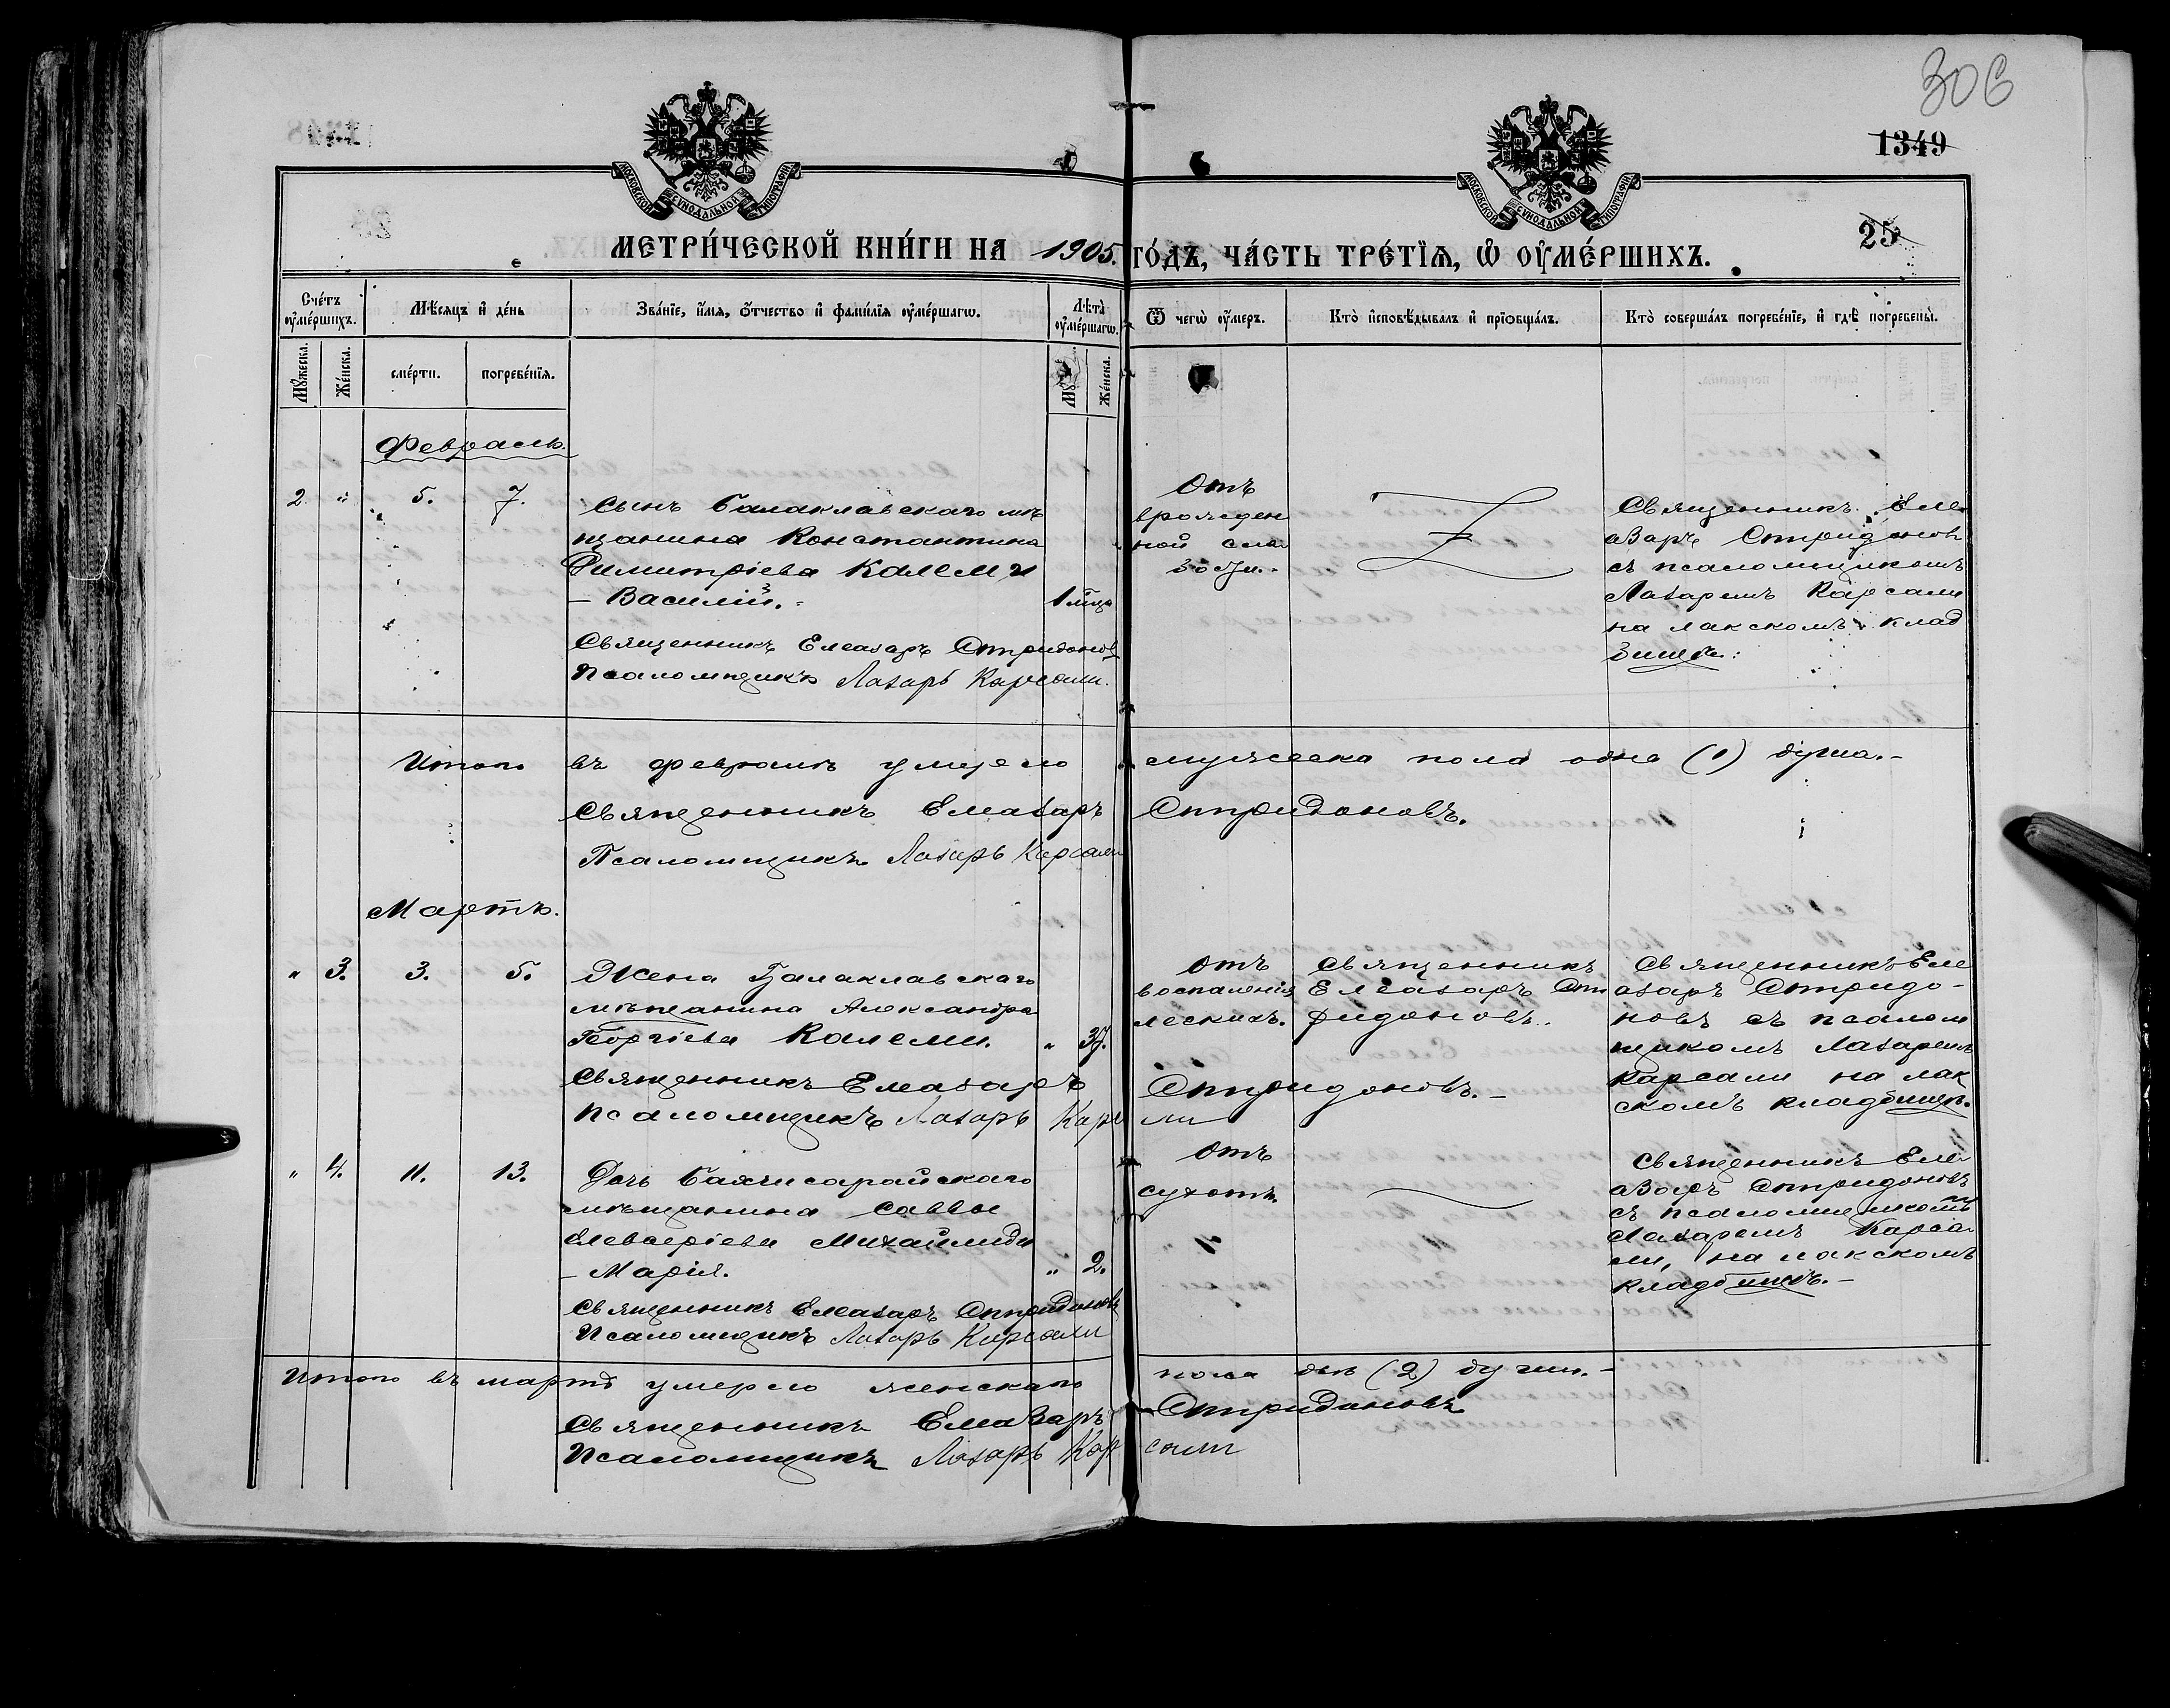 306
1349
25
МОСКОВСКОЙ СѴНОДАЛЬНОЙ ТИПОГРАФІИ
МОСКОВСКОЙ СѴНОДАЛЬНОЙ ТИПОГРАФІИ
МЕТРИ́ЧЕСКОЙ КНИ́ГИ НА 1905. ГО́ДЪ, ЧА́СТЬ ТРЕ́ТІѦ, Ѡ ОУ҆МЕ́РШИХЪ.
Сче́тъ оу҆ме́ршихъ.
Мѣ́сяцъ и҆ де́нь
Зва́нїе, и҆́мя, ѻ҆́тчество и҆ фами́лїя оу҆ме́ршагѡ.
Лѣта̀ оу҆ме́ршагѡ.
Ѿ чегѡ̀ оу҆́меръ.
Кто̀ и҆сповѣ́дывалъ и҆ прїѡбща́лъ.
Кто̀ соверша́лъ погребе́нїе, и҆ гдѣ̀ погребены̀.
Мꙋ́жеска.
Же́нска.
сме́рти.
погребе́нїя.
Же́нска.
Февраль.
2. " 5. 7.
Сынъ балаклавскаго мѣ
щанина Константина
Димитріева Калеми
– Василій.
1 мѣца
Священникъ Елеазаръ Спиридоновъ
Псаломщикъ Лазарь Карсали.
Отъ
врожден
ной сла
бости.
Священникъ Еле
азаръ Спиридонов
съ псаломщикомъ
Лазаремъ Карсали
на лакскомъ клад
бищѣ.
Итого въ февралѣ умерло мужеска пола одна (1) душа.–
Священникъ Елеазаръ Спиридоновъ.
Псаломщикъ Лазарь Карсали
Мартъ.
" 3. 3. 5.
Жена Балаклавскаго
мѣщанина Александра
Георгіева Калеми.
" 37.
Священникъ Елеазаръ Спиридоновъ.–
Псаломщикъ Лазарь Карсали
Отъ
воспаленія
легкихъ.
Священникъ
Елеазаръ Спи
ридоновъ.
Священникъ Еле
азаръ Спиридо-
новъ съ псалом
щикомъ Лазаремъ
Карсали на лак
скомъ кладбищѣ.
" 4. 11. 13.
Дочь бахчисарайскаго
мѣщанина Саввы
Елевферіева Михаилиди
– Марія.
" 2.
Священникъ Елеазаръ Спиридоновъ
Псаломщикъ Лазарь Карсали
Отъ
сухотъ.
Священникъ Еле
азаръ Спиридоновъ
съ псаломщикомъ
Лазаремъ Карса
ли, на лакскомъ
кладбищѣ.–
Итого въ мартѣ умерло женскаго пола двѣ (2) души.–
Священникъ Елеазаръ Спиридоновъ
Псаломщикъ Лазарь Карсали